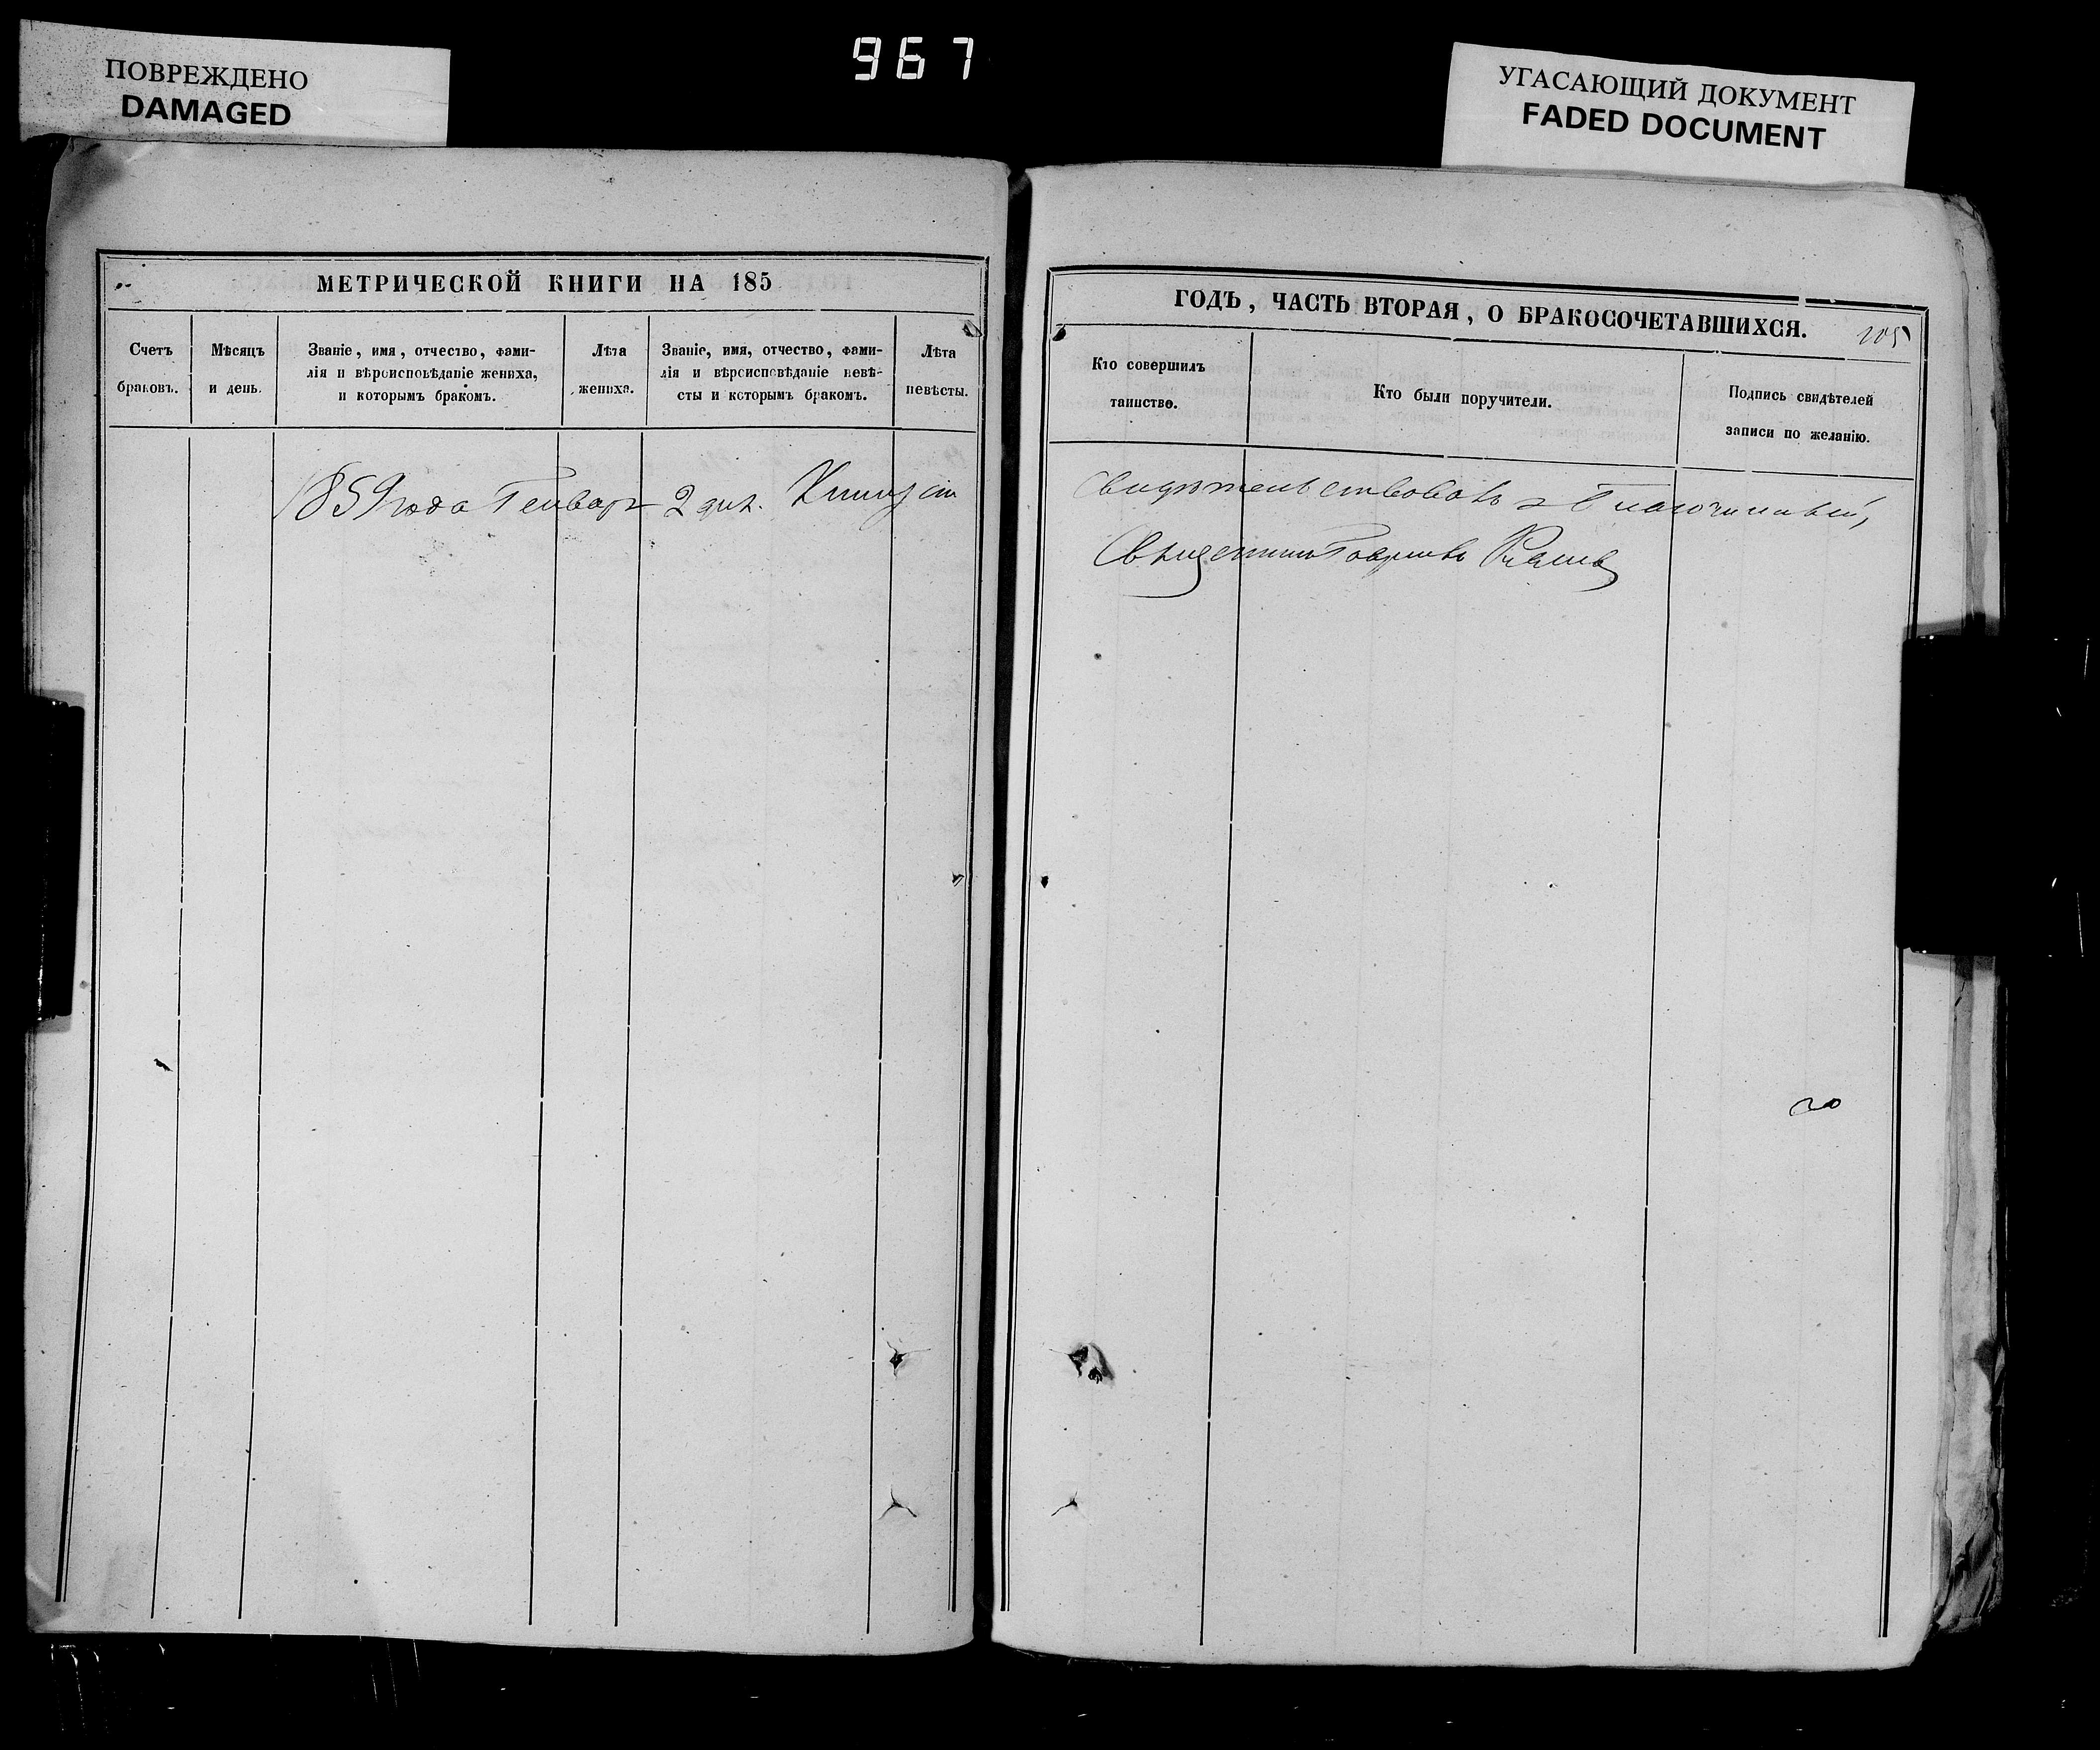 ПОВРЕЖДЕНО
DAMAGED
967
УГАСАЮЩИЙ ДОКУМЕНТ
FADED DOCUMENT
МЕТРИЧЕСКОЙ КНИГИ НА 185
Счетъ
браковъ.
Мѣсяцъ
и день.
Званіе, имя, отчество, фами-
лія и вѣроисповѣданіе жениха,
и которымъ бракомъ.
Лѣта
жениха.
Званіе, имя, отчество, фами-
лія и вѣроисповѣданіе невѣ-
сты и которымъ бракомъ.
Лѣта
невѣсты.
1859 года Генваря 2 дня. Книгу сію
ГОДЪ, ЧАСТЬ ВТОРАЯ, О БРАКОСОЧЕТАВШИХСЯ.
205
Кто совершилъ
таинство.
Кто были поручители.
Подпись свидѣтелей
записи по желанію.
свидѣтельствовалъ Благочинный,
Священникъ Гавріилъ